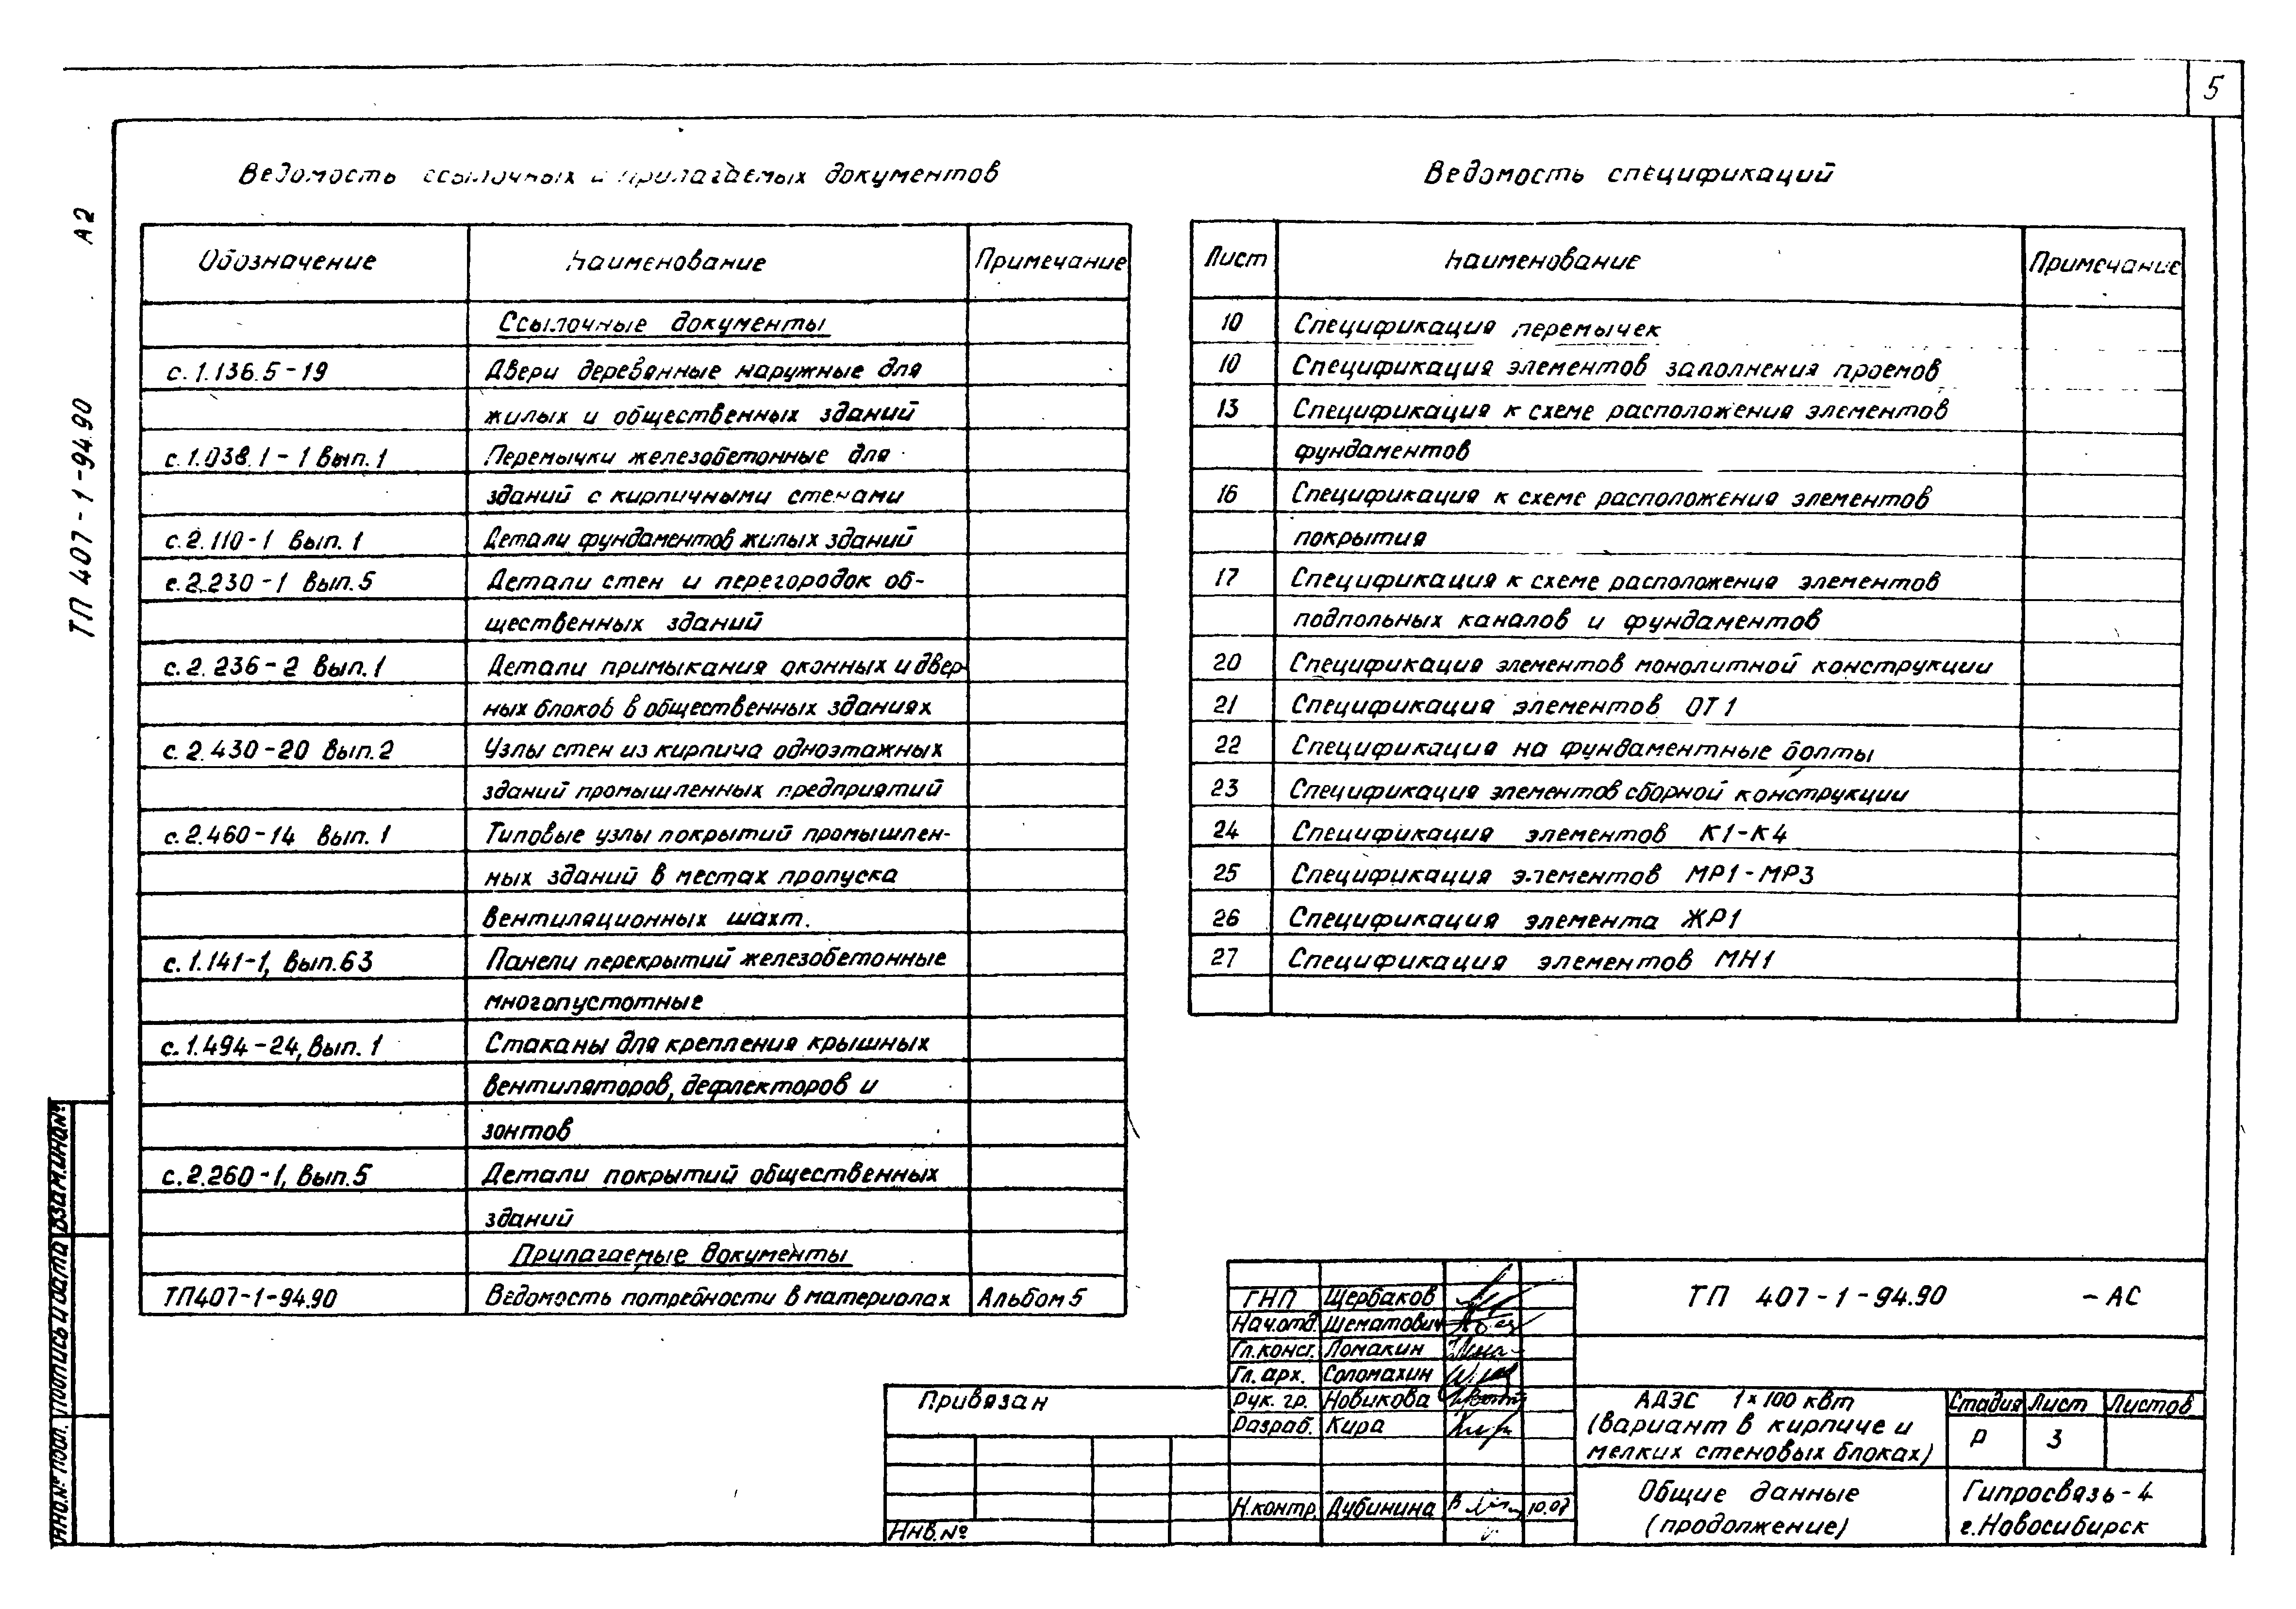 5
Ведомость ссылочных и прилагаемых документов
Обозначение Наименование Примечание
Ссылочные документы
с. 1.136.5-19 Двери деревянные наружные для
жилых и общественных зданий
с. 1.038.1-1 вып. 1 Перемычки железобетонные для
зданий с кирпичными стенами
с. 2.110-1 вып. 1 Детали фундаментов жилых зданий
с. 2.230-1 вып. 5 Детали стен и перегородок об-
щественных зданий
с. 2.236-2 вып. 1 Детали примыкания оконных и двер-
ных блоков в общественных зданиях
с. 2.430-20 вып. 2 Узлы стен из кирпича одноэтажных
зданий промышленных предприятий
с. 2.460-14 вып. 1 Типовые узлы покрытий промышлен-
ных зданий в местах пропуска
вентиляционных шахт.
с. 1.141-1, вып. 63 Панели перекрытий железобетонные
многопустотные
с. 1.494-24, вып. 1 Стаканы для крепления крышных
вентиляторов, дефлекторов и
зонтов
с. 2.260-1, вып. 5 Детали покрытий общественных
зданий
Прилагаемые документы
ТП407-1-94.90 Ведомость потребности в материалах Альбом 5
Ведомость спецификаций
Лист Наименование Примечание
10 Спецификация перемычек
10 Спецификация элементов заполнения проемов
13 Спецификация к схеме расположения элементов
фундаментов
16 Спецификация к схеме расположения элементов
покрытия
17 Спецификация к схеме расположения элементов
подпольных каналов и фундаментов
20 Спецификация элементов монолитной конструкции
21 Спецификация элементов ОТ1
22 Спецификация на фундаментные болты
23 Спецификация элементов сборной конструкции
24 Спецификация элементов К1-К4
25 Спецификация элементов МР1-МР3
26 Спецификация элемента ЖР1
27 Спецификация элементов МН1
А2
ТП 407-1-94.90
Взам.инв.№
Подпись и дата
Инв.№ подл.
Привязан
Инв.№
ГИП Щербаков
Нач.отд. Шематович
Гл.конст. Ломакин
Гл. арх. Соломахин
Рук. гр. Новикова
Разраб. Кира
Н.контр. Дубинина
ТП 407-1-94.90 -АС
АДЭС 1×100 квт
(вариант в кирпиче и
мелких стеновых блоках)
Стадия Лист Листов
Р 3
Общие данные
(продолжение)
Гипросвязь-4
г.Новосибирск